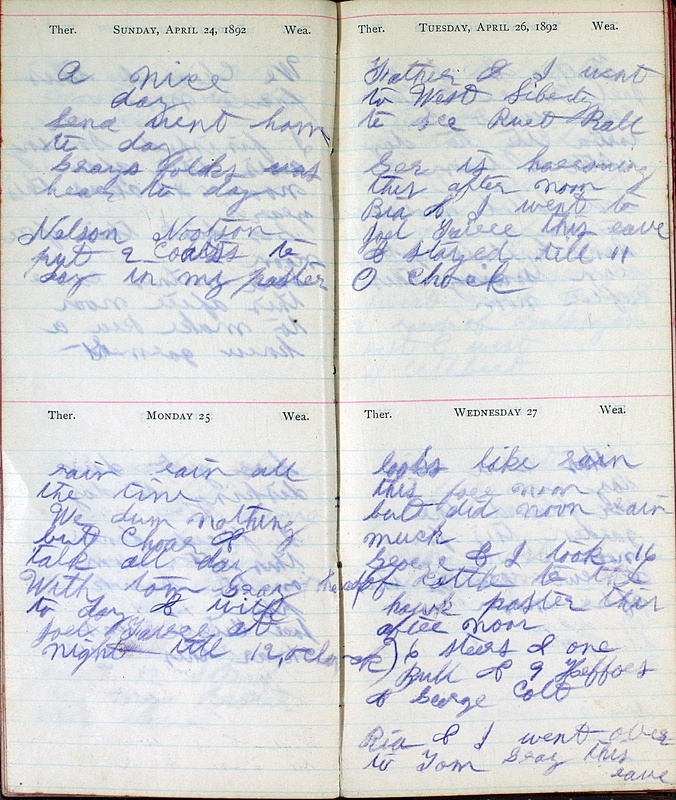 Ther. SUNDAY, APRIL 24, 1892 Wea.
A nice
day
Send went hom
te day
Grays folks was
hear to day
Nelson Nootson
put 2 Coalts te
day in my paster
Ther. MONDAY 25 Wea.
rain rain all
the time
We dum nothing
but Choar &
talk all day
With tom Gray
to day & with
Joel at
night till 12, o clock
Ther. TUESDAY, APRIL 26, 1892 Wea.
Frather & I went
to West Liberty
te see Ball
Ger is harroning
this after noon
Ria & I went to
Joel this eave
& stayed till 11
O Chock
Ther. WEDNESDAY 27 Wea.
looks like rain
this foer noon
but did noon rain
muck
George & I took 16
head of cettle te the
hawk paster this
after noon
6 steers & one
Bull & 9 Heffoes
& George Colt
Ria & I went over
to Tom Gray this
eave